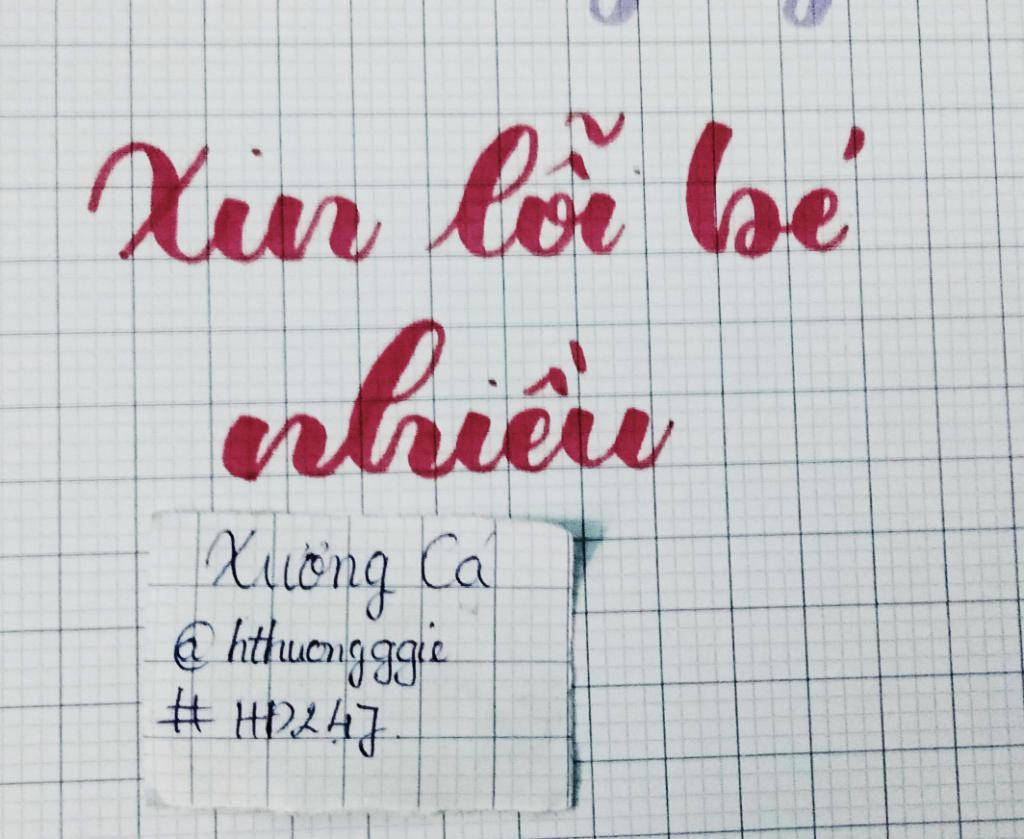 Xin lỗi bé
nhiều
Xương Cá
@hthuongggie
#HD247